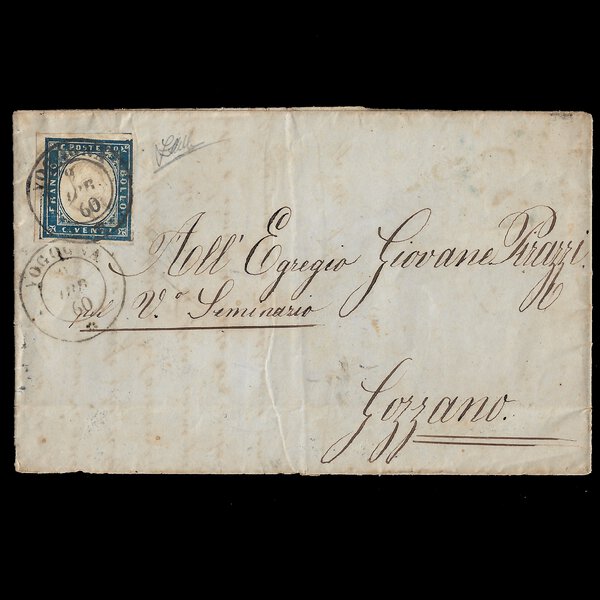 C. POSTE 20
FRANCO
BOLLO
C. VENTI
VOGOGNA
60
VOGOGNA
60
All' Egregio Giovane Pirazzi
V.º Seminario
Gozzano.